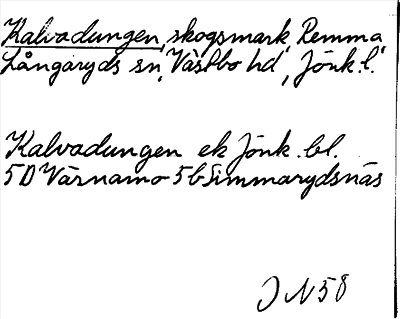 Kalvadungen, skogsmark, Remma
Långaryds sn, Västbo hd, Jönk. l.
Kalvadungen ek Jönk. bl.
5D Värnamo 5b Simmarydsnäs
J N 58